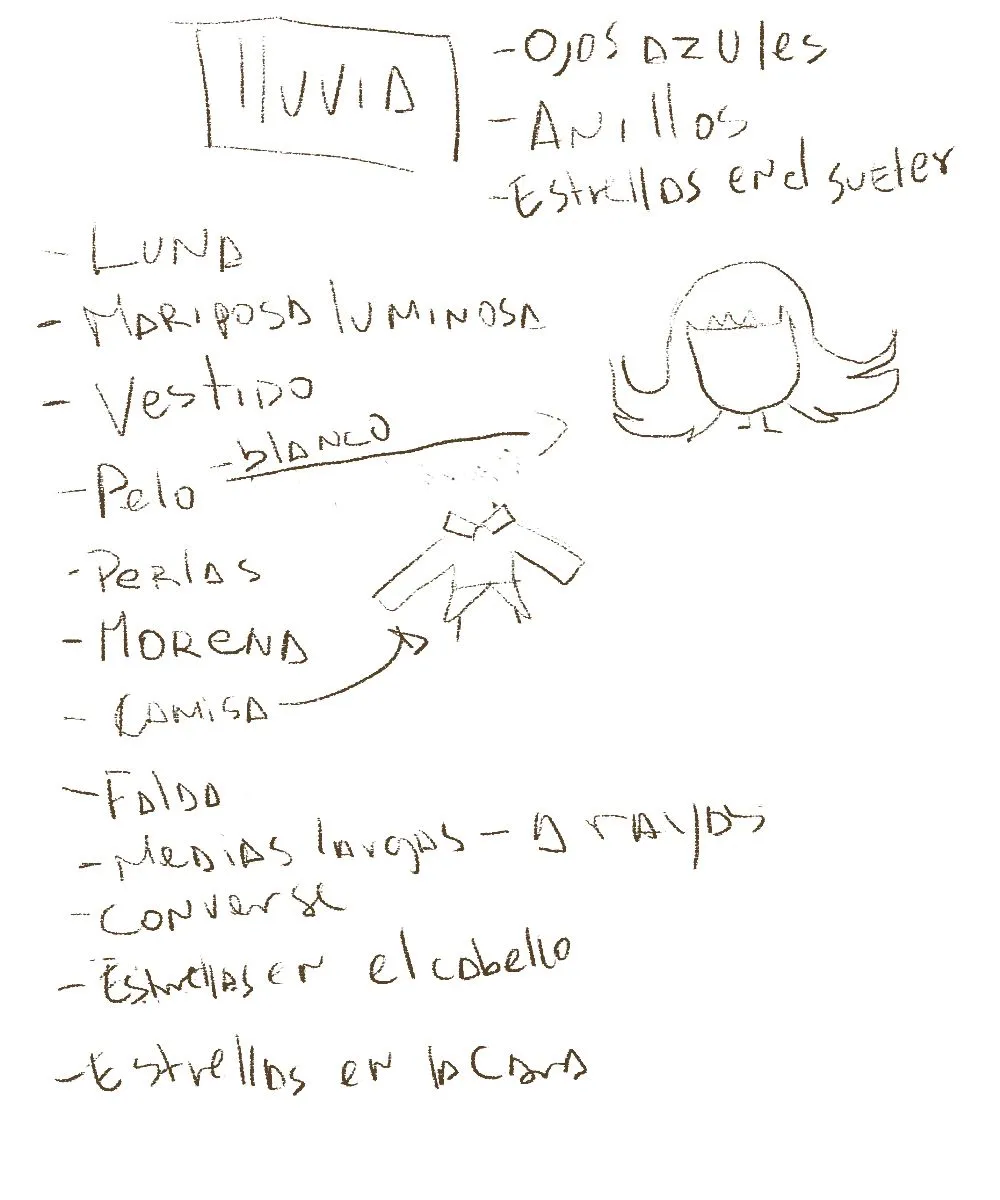 lluvia
- Ojos azules
- Anillos
- Estrellas en el sueter
- Luna
- Mariposa luminosa
- Vestido
- Pelo - blanco
- Perlas
- Morena
- Camisa
- Falda
- Medias largas - A rayas
- Converse
- Estrellas en el cabello
- Estrellas en la cara